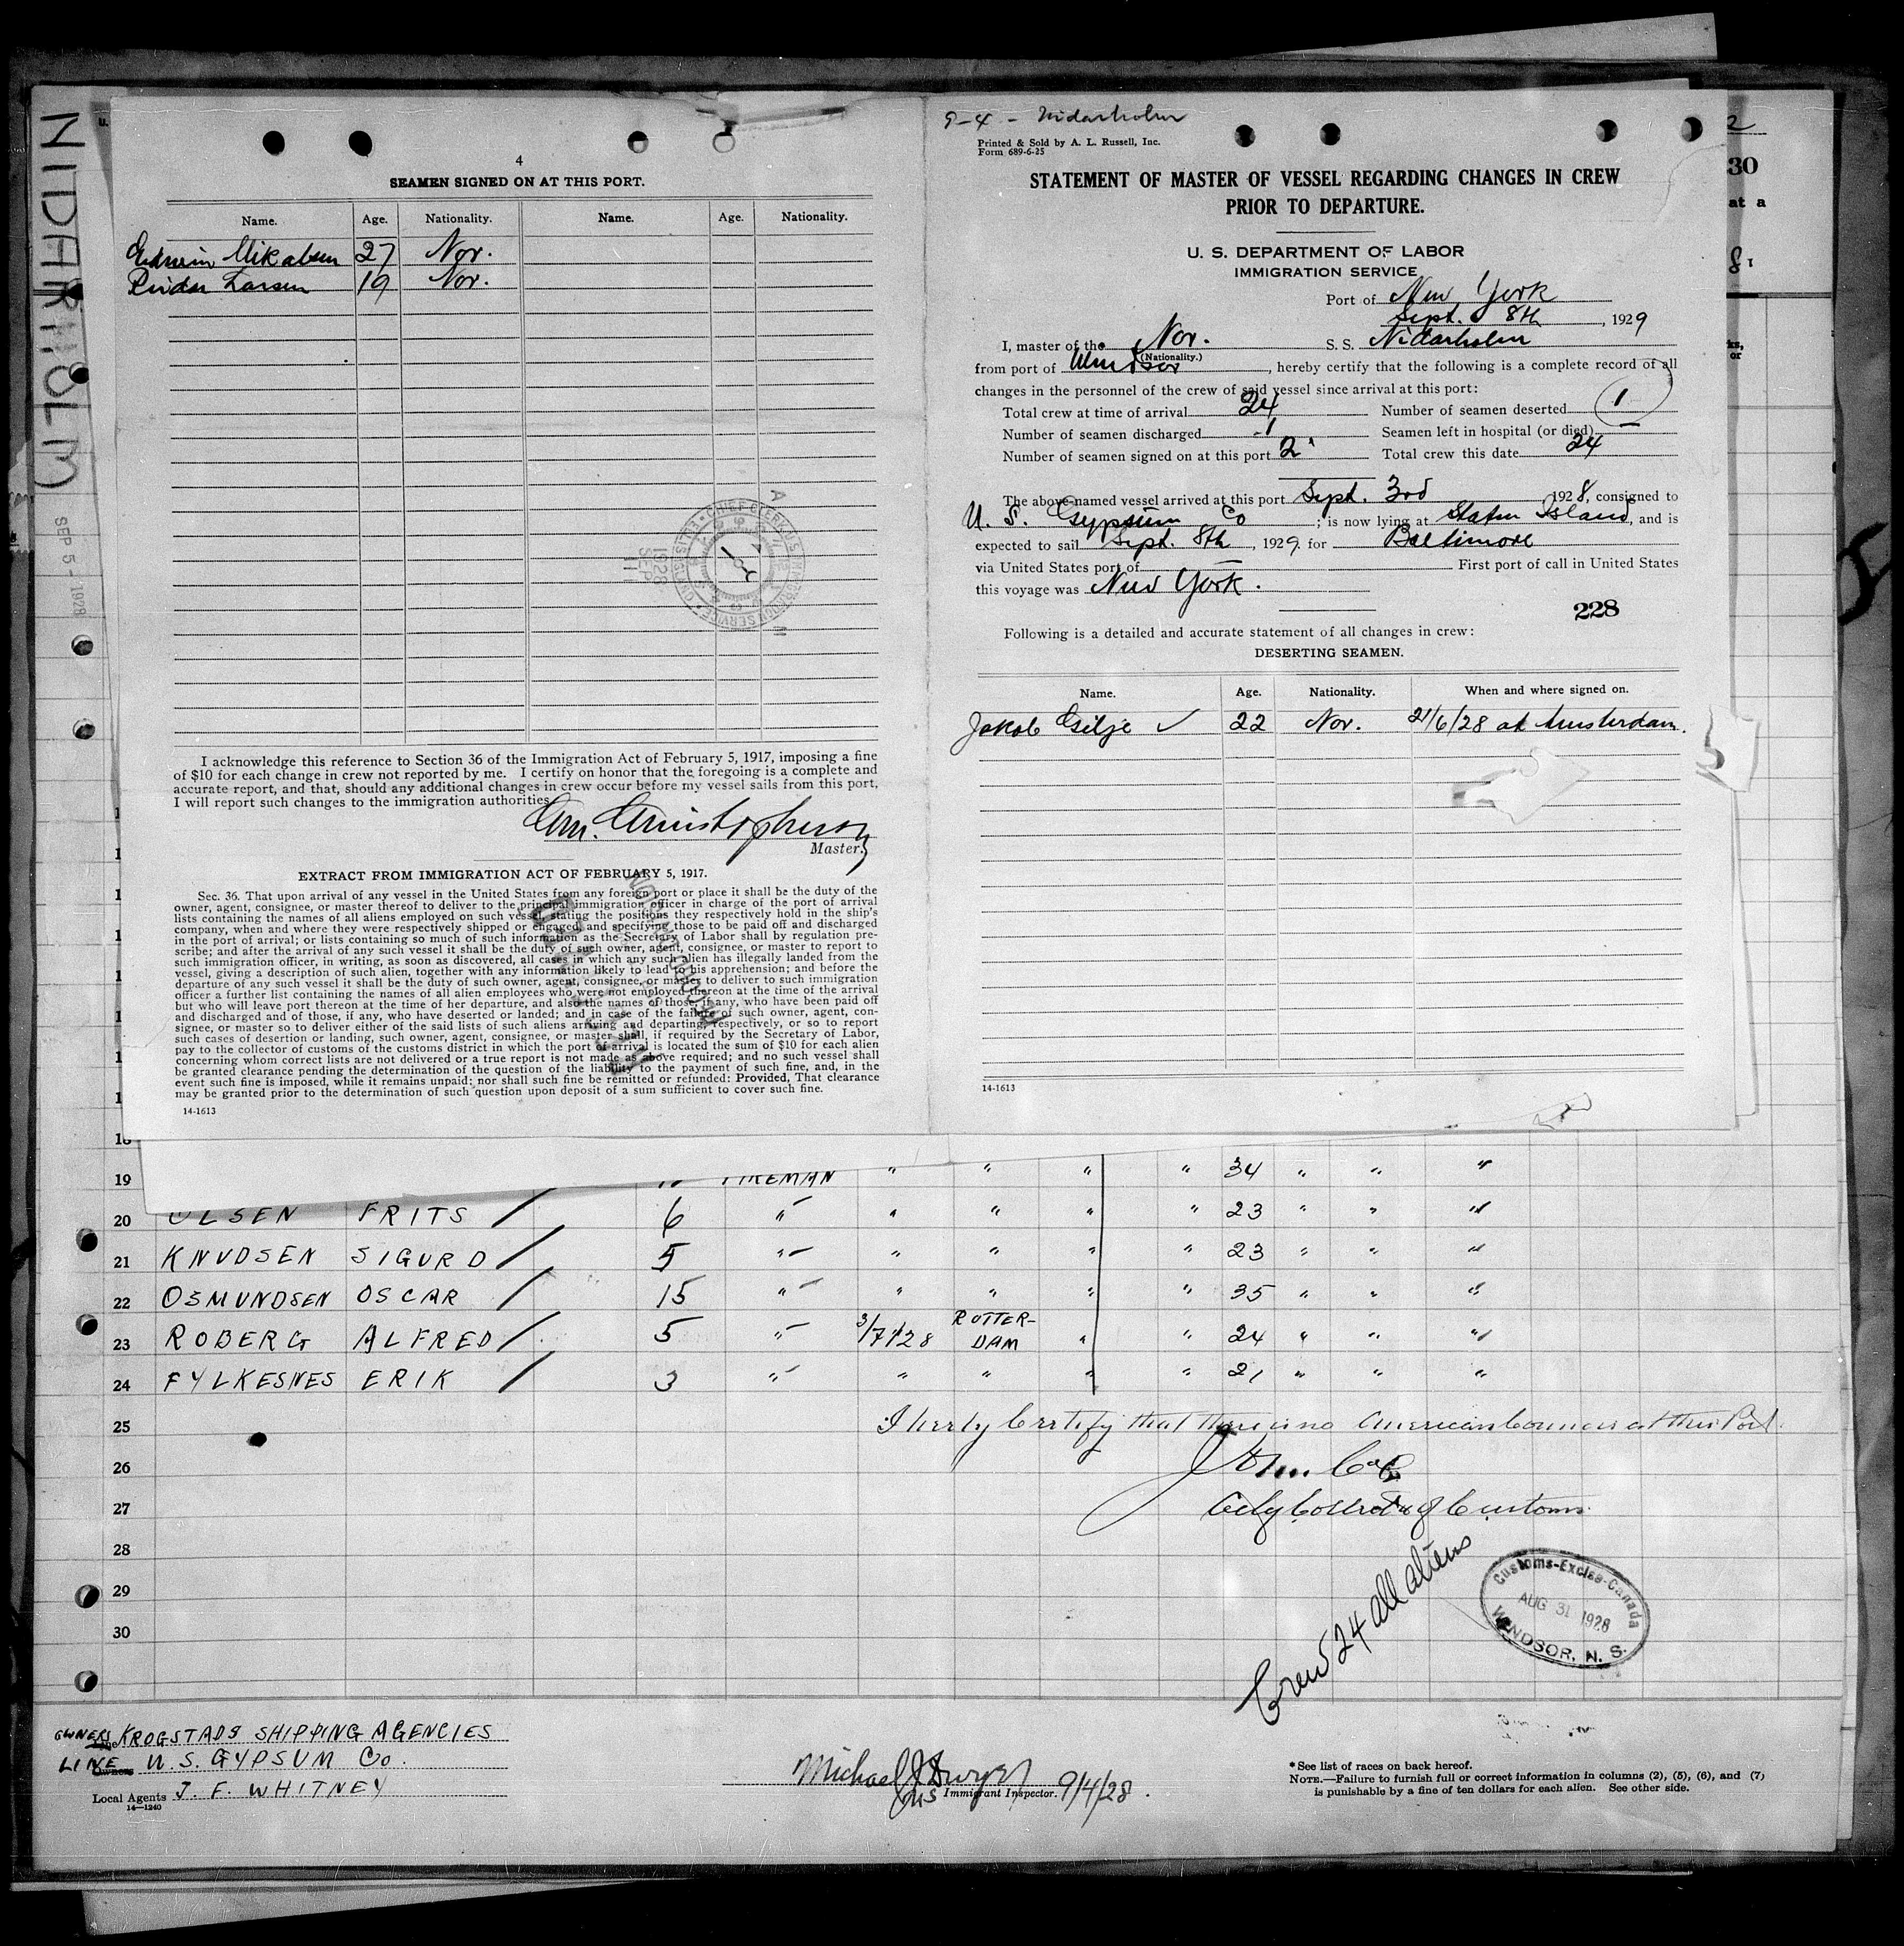 NIDARHOLM
SEP 5 - 1928
4
SEAMEN SIGNED ON AT THIS PORT.
Name. Age. Nationality. Name. Age. Nationality.
Edwin Mikalsen 27 Nor.
Larsen 19 Nor.
I acknowledge this reference to Section 36 of the Immigration Act of February 5, 1917, imposing a fine
of $10 for each change in crew not reported by me. I certify on honor that the foregoing is a complete and
accurate report, and that, should any additional changes in crew occur before my vessel sails from this port,
I will report such changes to the immigration authorities
Master.
EXTRACT FROM IMMIGRATION ACT OF FEBRUARY 5, 1917.
Sec. 36. That upon arrival of any vessel in the United States from any foreign port or place it shall be the duty of the
owner, agent, consignee, or master thereof to deliver to the principal immigration officer in charge of the port of arrival
lists containing the names of all aliens employed on such vessel, stating the positions they respectively hold in the ship's
company, when and where they were respectively shipped or engaged, and specifying those to be paid off and discharged
in the port of arrival; or lists containing so much of such information as the Secretary of Labor shall by regulation pre-
scribe; and after the arrival of any such vessel it shall be the duty of such owner, agent, consignee, or master to report to
such immigration officer, in writing, as soon as discovered, all cases in which any such alien has illegally landed from the
vessel, giving a description of such alien, together with any information likely to lead to his apprehension; and before the
departure of any such vessel it shall be the duty of such owner, agent, consignee, or master to deliver to such immigration
officer a further list containing the names of all alien employees who were not employed thereon at the time of the arrival
but who will leave port thereon at the time of her departure, and also the names of those, if any, who have been paid off
and discharged and of those, if any, who have deserted or landed; and in case of the failure of such owner, agent, con-
signee, or master so to deliver either of the said lists of such aliens arriving and departing, respectively, or so to report
such cases of desertion or landing, such owner, agent, consignee, or master shall, if required by the Secretary of Labor,
pay to the collector of customs of the customs district in which the port of arrival is located the sum of $10 for each alien
concerning whom correct lists are not delivered or a true report is not made as above required; and no such vessel shall
be granted clearance pending the determination of the question of the liability to the payment of such fine, and, in the
event such fine is imposed, while it remains unpaid; nor shall such fine be remitted or refunded: Provided, That clearance
may be granted prior to the determination of such question upon deposit of a sum sufficient to cover such fine.
14-1613
9-4 - Nidarholm
Printed & Sold by A. L. Russell, Inc.
Form 689-6-25
STATEMENT OF MASTER OF VESSEL REGARDING CHANGES IN CREW
PRIOR TO DEPARTURE.
U. S. DEPARTMENT OF LABOR
IMMIGRATION SERVICE
Port of New York
Sept. 8th, 1929
I, master of the Nor. S. S. Nidarholm
(Nationality.)
from port of Windsor, hereby certify that the following is a complete record of all
changes in the personnel of the crew of said vessel since arrival at this port:
Total crew at time of arrival 24 Number of seamen deserted 1
Number of seamen discharged 1 Seamen left in hospital (or died) —
Number of seamen signed on at this port 2 Total crew this date 24
The above-named vessel arrived at this port Sept. 3rd 1928, consigned to
U. S. Gypsum Co; is now lying at Staten Island, and is
expected to sail Sept. 8th, 1929. for Baltimore
via United States port of — First port of call in United States
this voyage was New York.
228
Following is a detailed and accurate statement of all changes in crew:
DESERTING SEAMEN.
Name. Age. Nationality. When and where signed on.
Jakob Gilje ✓ 22 Nor. 21/6/28 at Amsterdam.
14-1613
2
30
at a
19 FIREMAN " " " " 34 " " "
20 OLSEN FRITS / 6 " " " " " 23 " " "
21 KNUDSEN SIGURD / 5 " " " " " 23 " " "
22 OSMUNDSEN OSCAR / 15 " " " " " 35 " " "
23 ROBERG ALFRED / 5 " 3/7/28 ROTTER-DAM " " 24 " " "
24 FYLKESNES ERIK / 3 " " " " " 21 " " "
25 I herby Certify that there is no American Counsul at this Port.
26
27 Collector of Customs
28
29
30
Crew 24 all aliens
Customs-Excise-Canada
AUG 31 1928
WINDSOR, N. S.
OWNERS KROGSTADS SHIPPING AGENCIES
LINE U. S. GYPSUM Co.
Local Agents J. F. WHITNEY
14—1240
Michael J Dwyer
Immigrant Inspector. 9/4/28.
*See list of races on back hereof.
NOTE.—Failure to furnish full or correct information in columns (2), (5), (6), and (7)
is punishable by a fine of ten dollars for each alien. See other side.